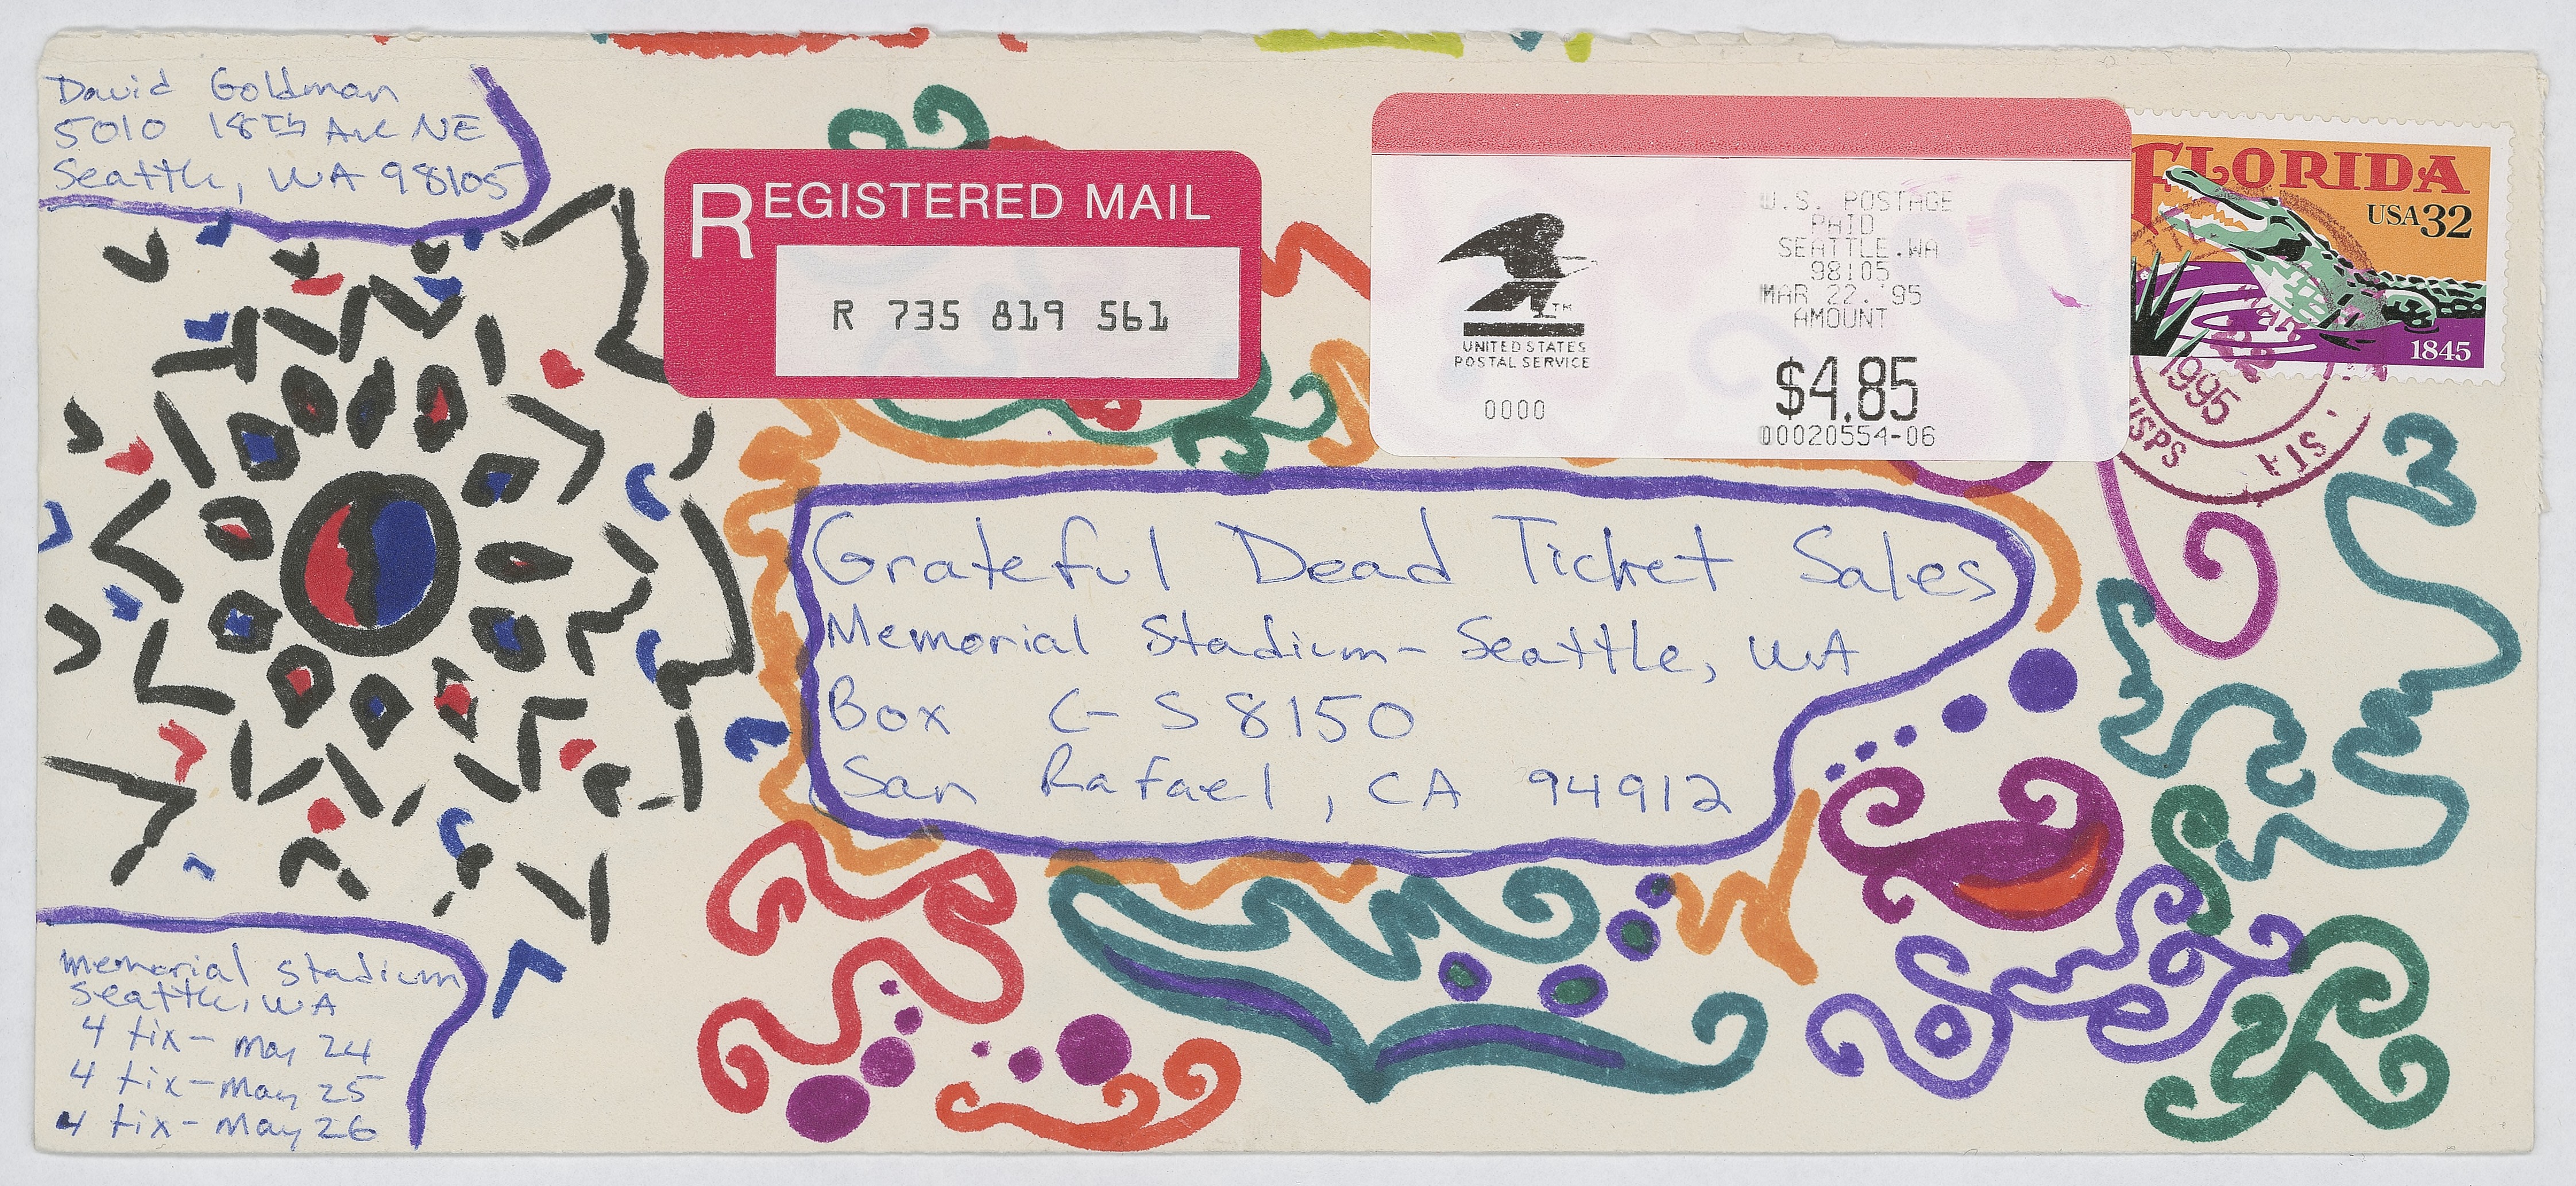 David Goldman
5010 18th Ave NE
Seattle, WA 98105
REGISTERED MAIL
R 735 819 561
UNITED STATES
POSTAL SERVICE
0000
U.S. POSTAGE
PAID
SEATTLE.WA
98105
MAR 22.'95
AMOUNT
$4.85
00020554-06
FLORIDA
USA32
1845
MAR
22
1995
USPS
STA.
Grateful Dead Ticket Sales
Memorial Stadium - Seattle, WA
Box C-S 8150
San Rafael, CA 94912
memorial stadium
Seattle, WA
4 tix - may 24
4 tix - may 25
4 tix - may 26